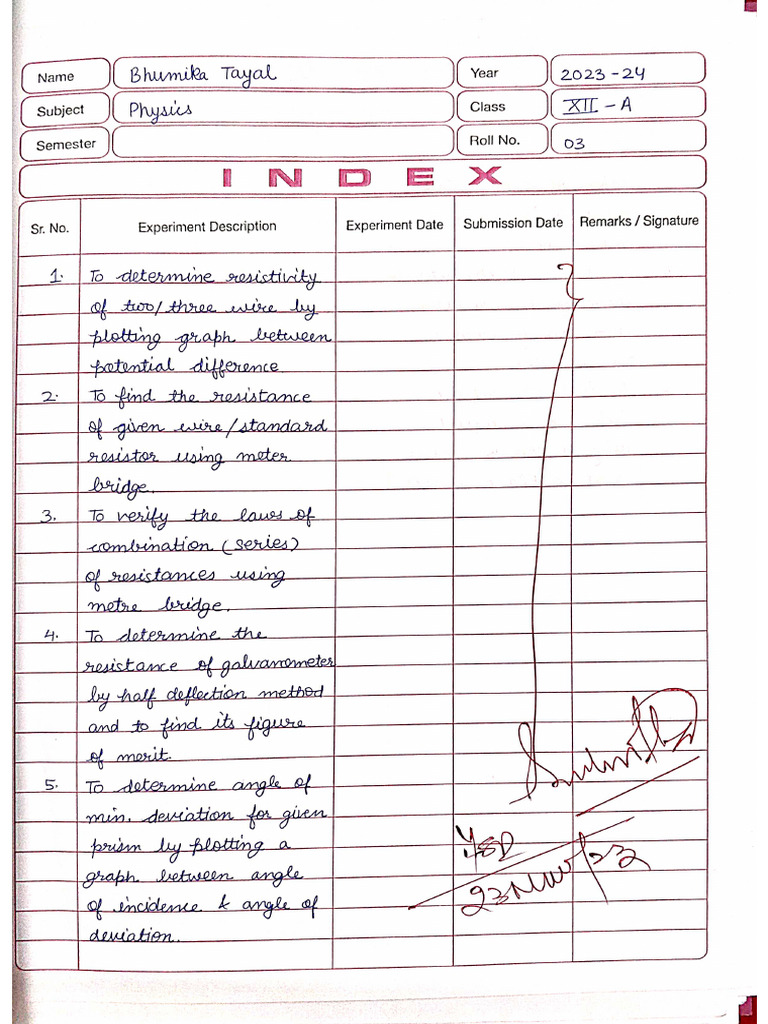 Name Bhumika Tayal Year 2023-24
Subject Physics Class XII-A
Semester Roll No. 03
INDEX
Sr. No. Experiment Description Experiment Date Submission Date Remarks / Signature
1. To determine resistivity
of two/three wire by
plotting graph between
potential difference
2. To find the resistance
of given wire/standard
resistor using meter
bridge.
3. To verify the laws of
combination (series)
of resistances using
metre bridge.
4. To determine the
resistance of galvanometer
by half deflection method
and to find its figure
of merit.
5. To determine angle of
min. deviation for given
prism by plotting a
graph between angle
of incidence & angle of
deviation.